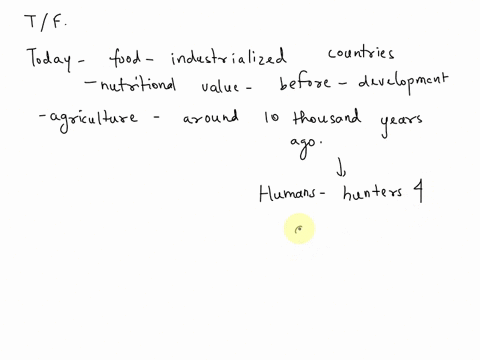 T/F.
Today - food - industrialized countries
- nutritional value - before - development
- agriculture - around 10 thousand years
ago.
Humans - hunters &